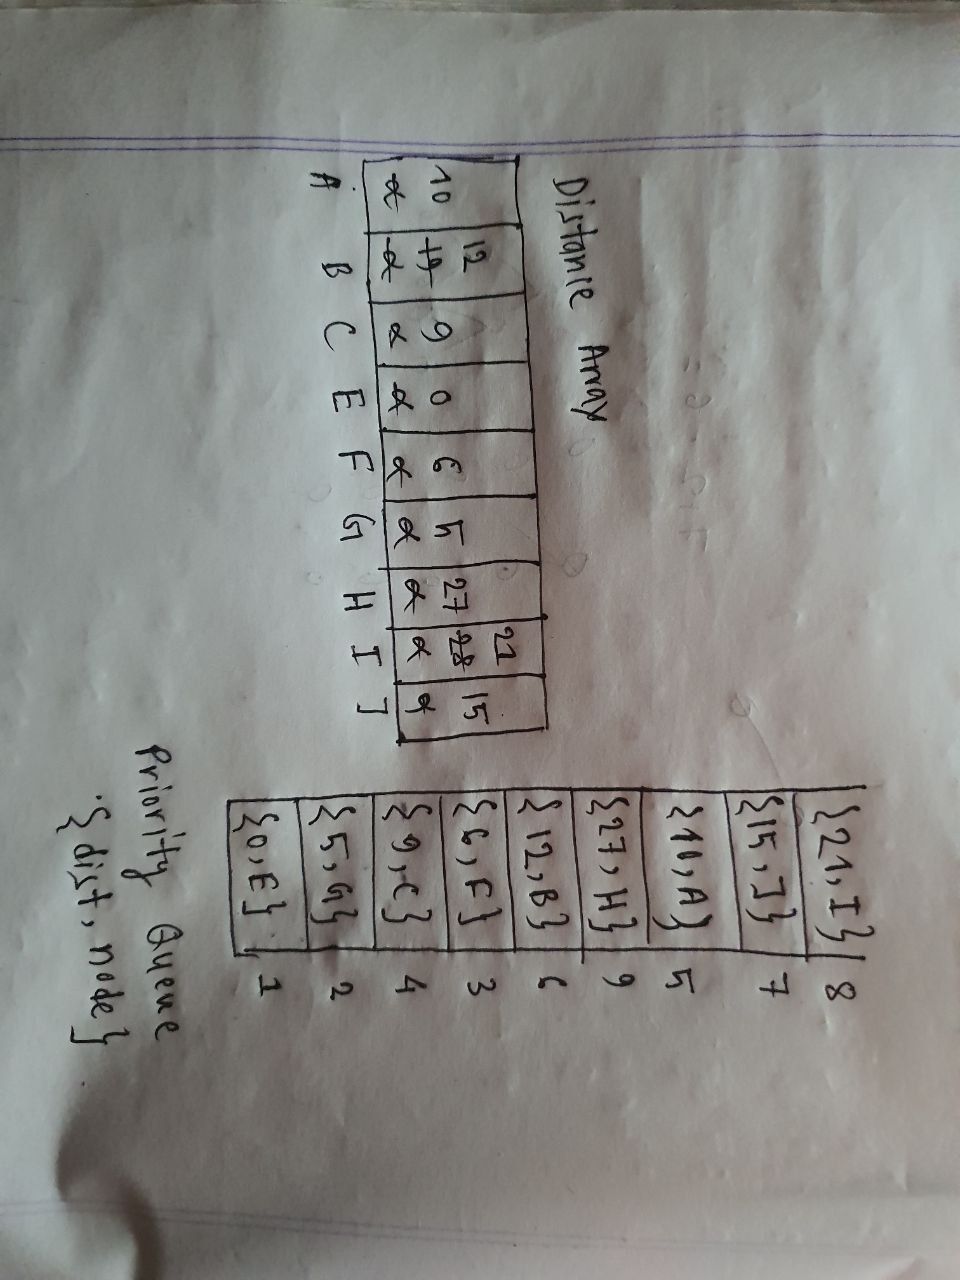 Distance Array
12 21
10 19 9 0 6 5 27 28 15
α α α α α α α α α
A B C E F G H I J
{21, I} 8
{15, J} 7
{10, A} 5
{27, H} 9
{12, B} 6
{6, F} 3
{9, C} 4
{5, G} 2
{0, E} 1
Priority Queue
{dist, node}